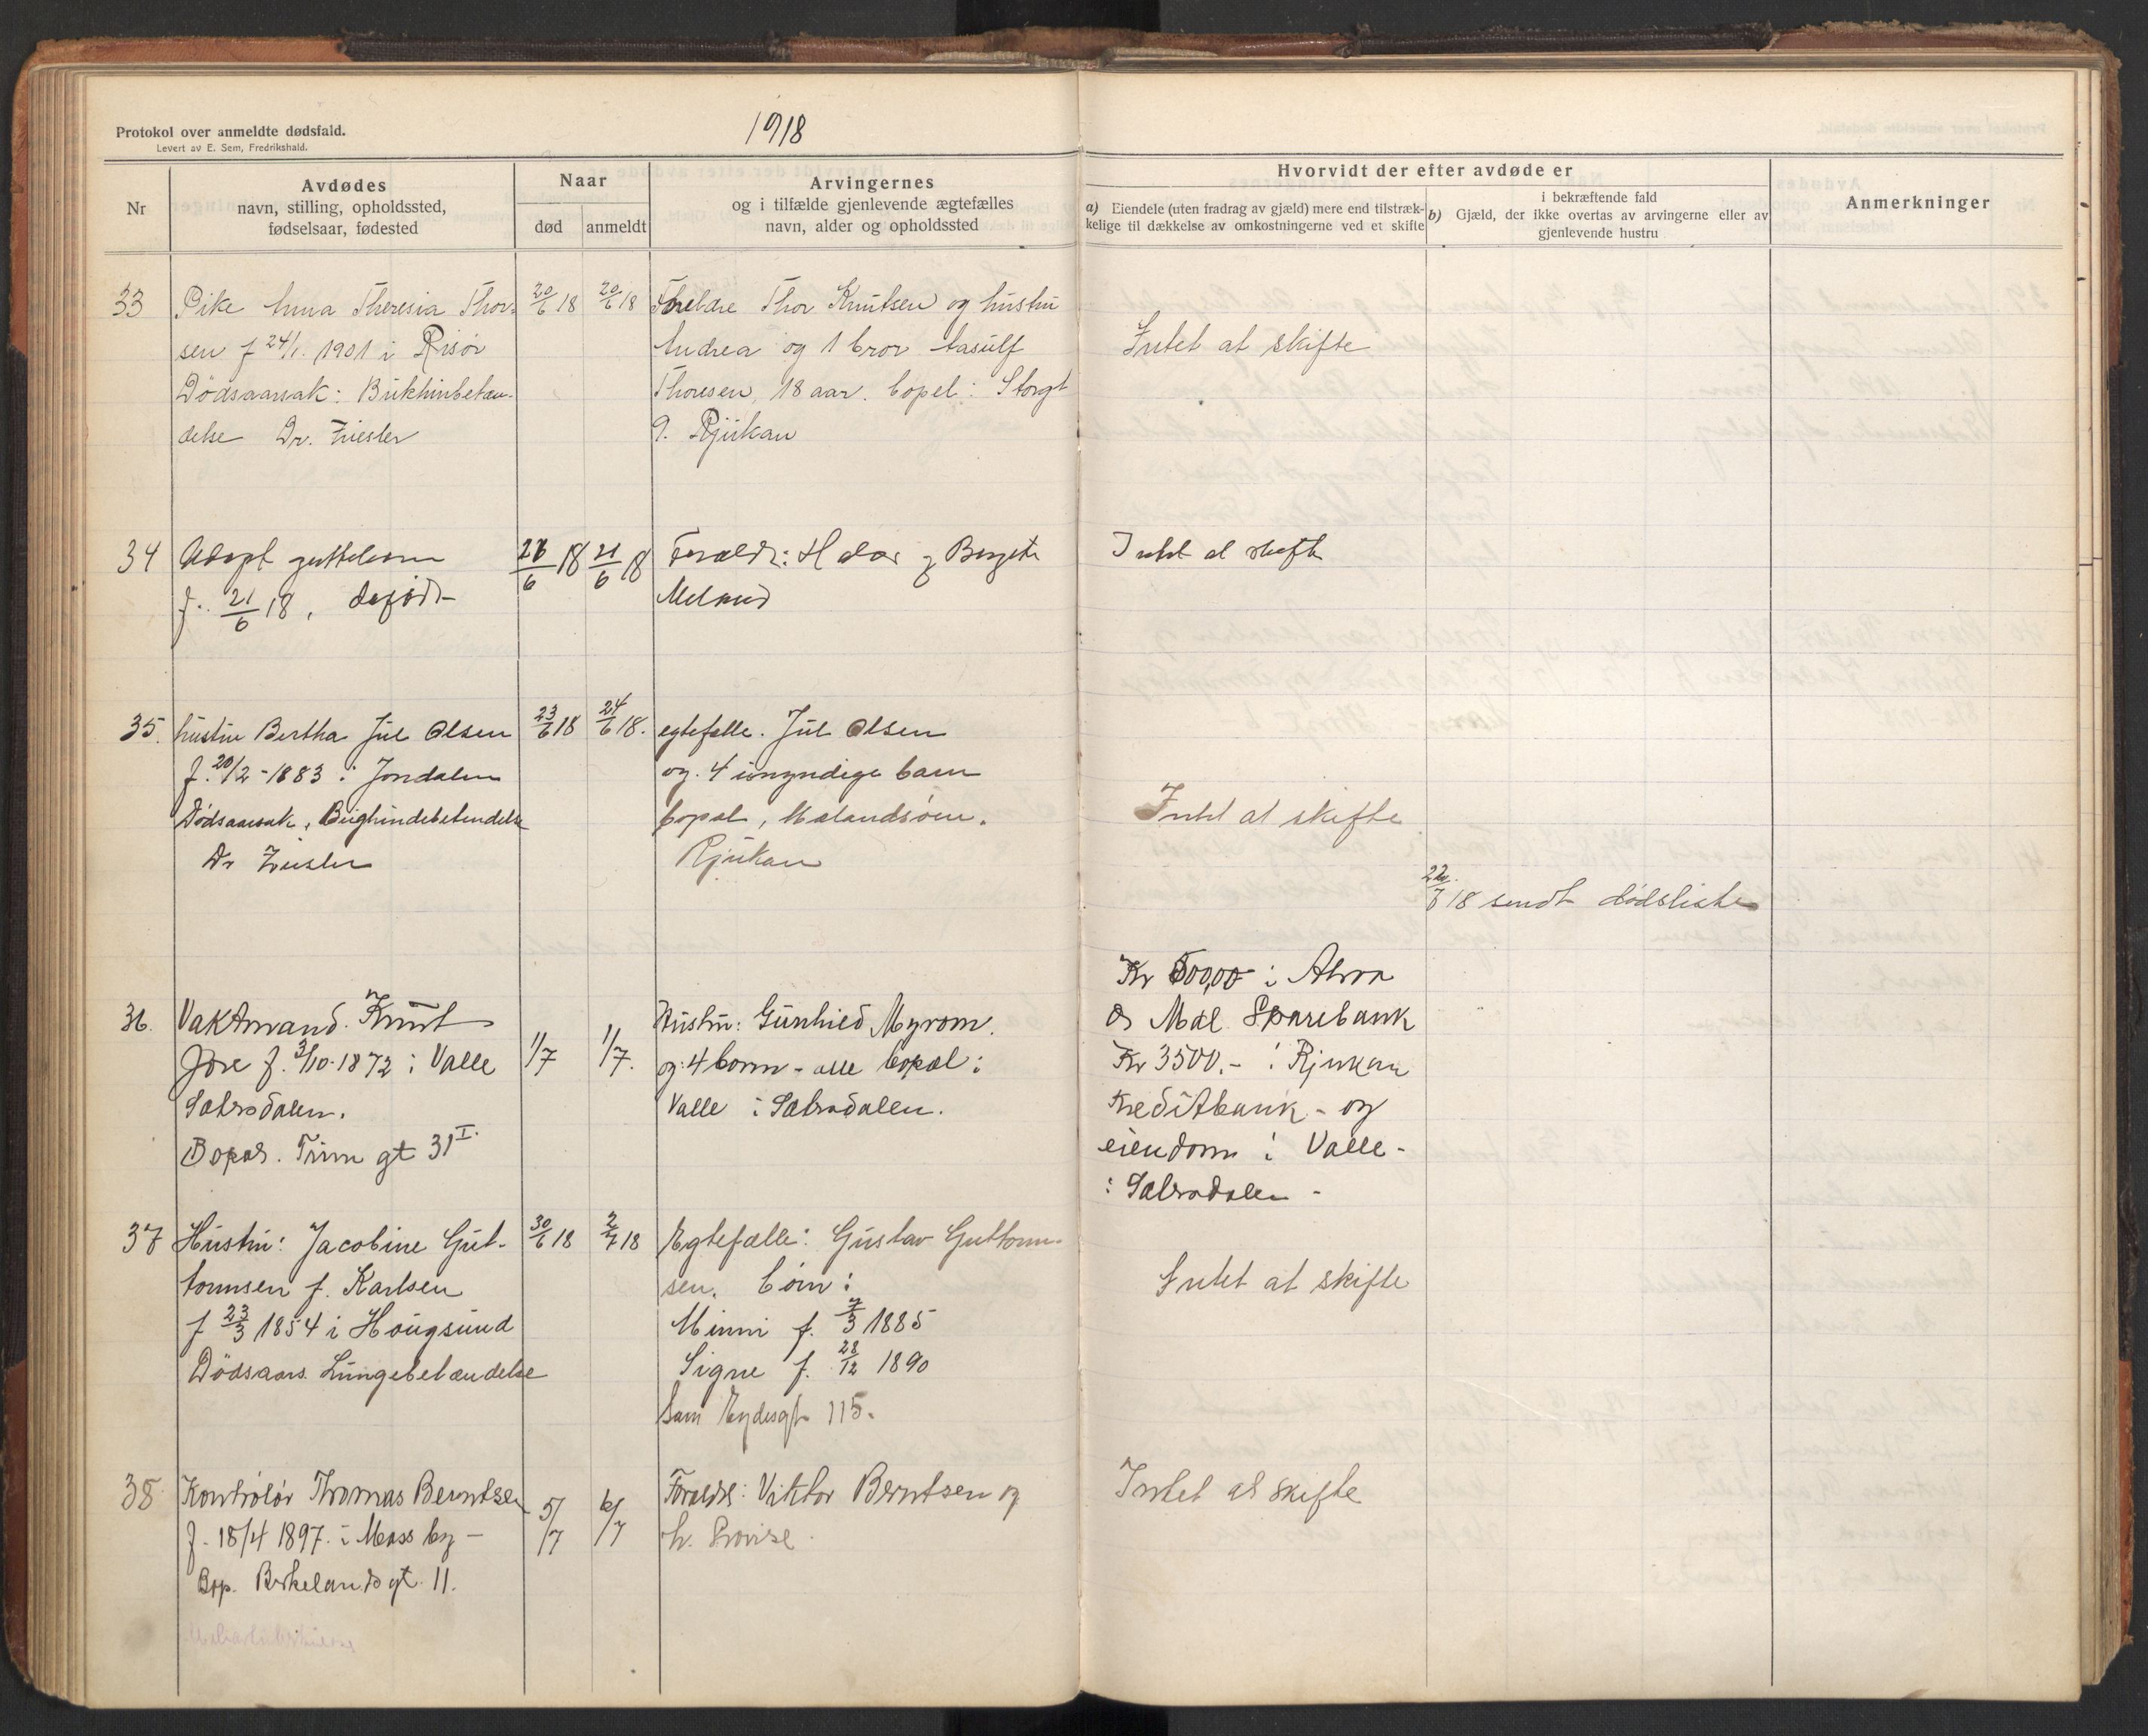 1918
Protokol over anmeldte dødsfald.
Levert av E. Sem, Fredrikshald.
Nr
Avdødes
navn, stilling, opholdssted,
fødselsaar, fødested
Naar
død
anmeldt
Arvingernes
og i tilfælde gjenlevende ægtefælles
navn, alder og opholdssted
Hvorvidt der efter avdøde er
a) Eiendele (uten fradrag av gjæld) mere end tilstræk-
kelige til dækkelse av omkostningerne ved et skifte
i bekræftende fald
b) Gjæld, der ikke overtas av arvingerne eller av
gjenlevende hustru
Anmerkninger
33
Pike Anna Theresia Thor-
sen f 24/1. 1901 i Risør
Dödsaarsak: Bukhinbetæn-
delse Dr. Ziesler
20/6 18
20/6 18
Foreldre Thor Knutsen og hustru
Andrea og 1 bror Aasulf
Thoresen, 18 aar. bopel: Storgt
9. Rjukan
Intet at skifte
34
guttebarn
f. 21/6 18, døfødt
21/6 18
21/6 18
Foreldr: og Bergite
Intet at skifte
35.
hustru Bertha Jul Olsen
f. 20/2 - 1883 i Jondalen
Dödsaarsak, Bughindebetendelse
Dr Ziesler
23/6 18
24/6 18.
egtefelle. Jul Olsen
og. 4 umyndige barn
bopal, Mælandsöen.
Rjukan
Intet at skifte
18 sendt dødsliste
36.
Vaktmand. Knut
Jore f. 3/10-1872 i Valle
Sætersdalen.
Bopæl. Trim gt 31 I.
1/7
1/7.
Hustru: Gunhild Myrom.
og 4 born - alle bopæl i
Valle i Sætersdalen.
i Atraa
og Mæl Sparebank
Kr 3500.- i Rjukan
Kreditbank - og
eiendom i Valle -
i Sætersdalen -
37
Hustru: Jacobine Gut-
tormsen f. Karlsen
f 23/3 1854 i Hougsund
Dödsaars. Lungebetændelse
30/6 18
2/7 18
Egtefælle: Gustav Guttorm-
sen. börn:
Minni f. 7/3 1885
Signe f. 28/12 1890
Sam Eydesgt 115.
Intet at skifte
38
Kontrolör Thomas Berntsen
f. 18/4 1897. i Moss by -
Bop. Birkelandsgt. 11.
5/7
6/7
Foreldre: Viktor Berntsen og
h. Lovise.
Intet at skifte